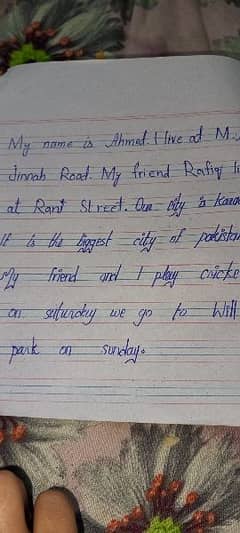 My name is Ahmed. I live at M.
Jinnah Road. My friend Rafiq li
at Rani Street. Our city is Kara
It is the biggest city of pakistan
My friend and I play cricke
on saturday we go to Hill
park on sunday.